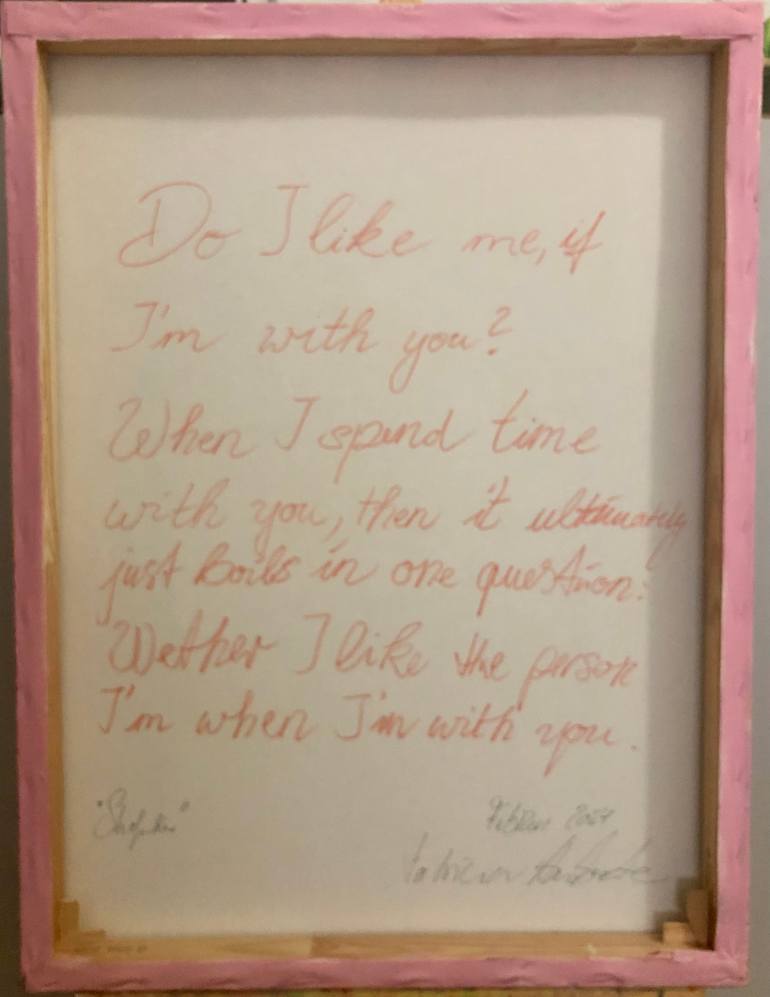 Do I like me, if
I'm with you?
When I spend time
with you, then it ultimately
just boils in one question:
Wether I like the person
I'm when I'm with you.